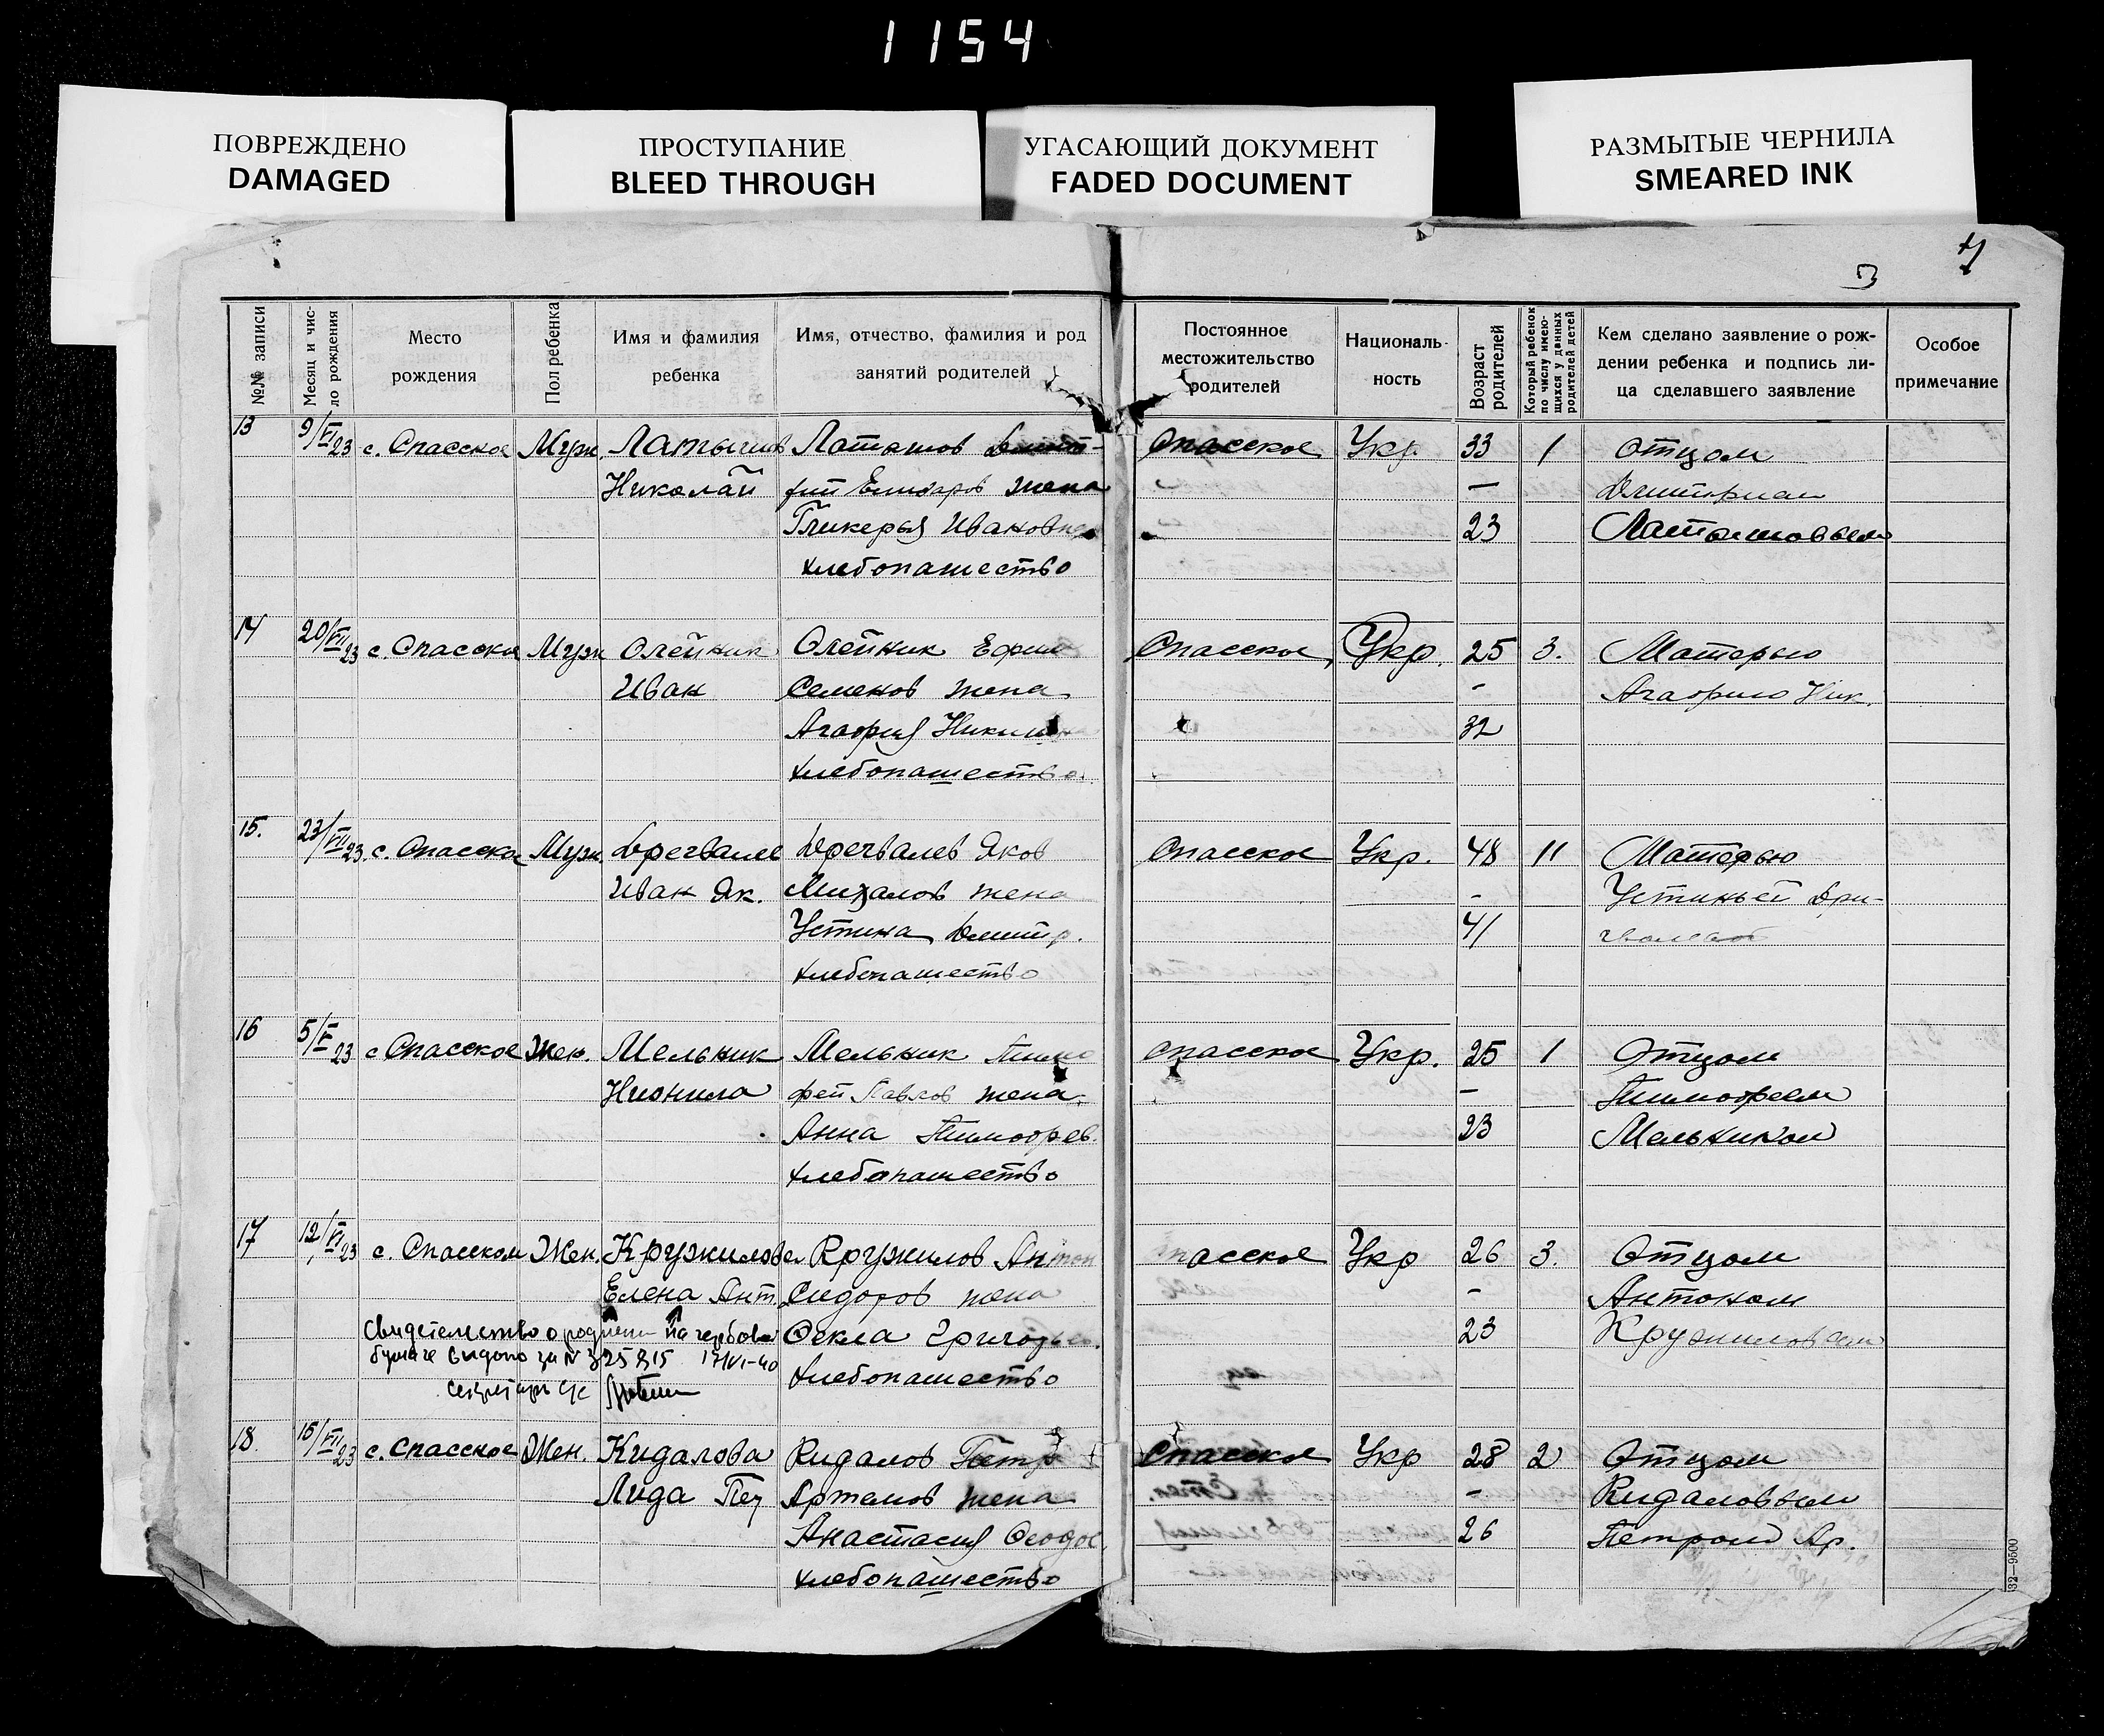 1154
ПОВРЕЖДЕНО
DAMAGED
ПРОСТУПАНИЕ
BLEED THROUGH
УГАСАЮЩИЙ ДОКУМЕНТ
FADED DOCUMENT
РАЗМЫТЫЕ ЧЕРНИЛА
SMEARED INK
№№ записи
Месяц и чис-
ло рождения
Место
рождения
Пол ребенка
Имя и фамилия
ребенка
Имя, отчество, фамилия и род
занятий родителей
Постоянное
местожительство
родителей
Националь-
ность
Возраст
родителей
Который ребенок
по числу имею-
щихся у данных
родителей детей
Кем сделано заявление о рож-
дении ребенка и подпись ли-
ца сделавшего заявление
Особое
примечание
13 9/VI 23 с. Спасское Муж. Латышов Спасское Укр. 33 1 Отцом
Николай жена —
Гликерья Ивановна 23 Латышовым
хлебопашество
14 20/VII 23 с. Спасское Муж Олейник Олейник Ефим Спасское Укр. 25 3. Матерью
Иван Семенов жена - Агафию Ник.
Агафия 32
хлебопашество.
15. 23/VII 23. с. Спасское Муж. Яков Спасское Укр. 48 11 Матерью
Иван Як. жена - Устиньей
Устина Дмитр. 41
хлебопашество
16 5/V 23 с Спасское Жен. Мельник Мельник Тимо Спасское Укр. 25 1 Отцом
фей Павлов жена. — Тимофеем
Анна Тимофев. 23 Мельником
хлебопашество
17 12/VI 23 с. Спасском Жен. Кружилова Кружилов Антон пасское Укр 26 3. Отцом
Елена Ант. Сидоров жена - Антоном
Свидетельство о на гербовой Фекла 23 Кружиловым
бумаге выдано за № 17/VI-40 хлебопашество
секретарь
18. 15/VII 23 с. Спасское Жен. Кидалова Кидалов Петр Спасское Укр 28 2 Отцом
Лида Пет Артемов жена - Кидаловым
Анастасия Феодос. 26 Петром Ар.
хлебопашество
32—9500